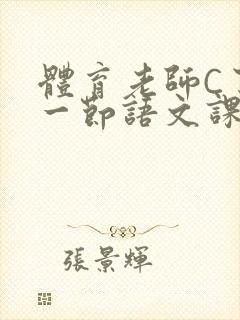 體育老師C
一節語文課
張景輝